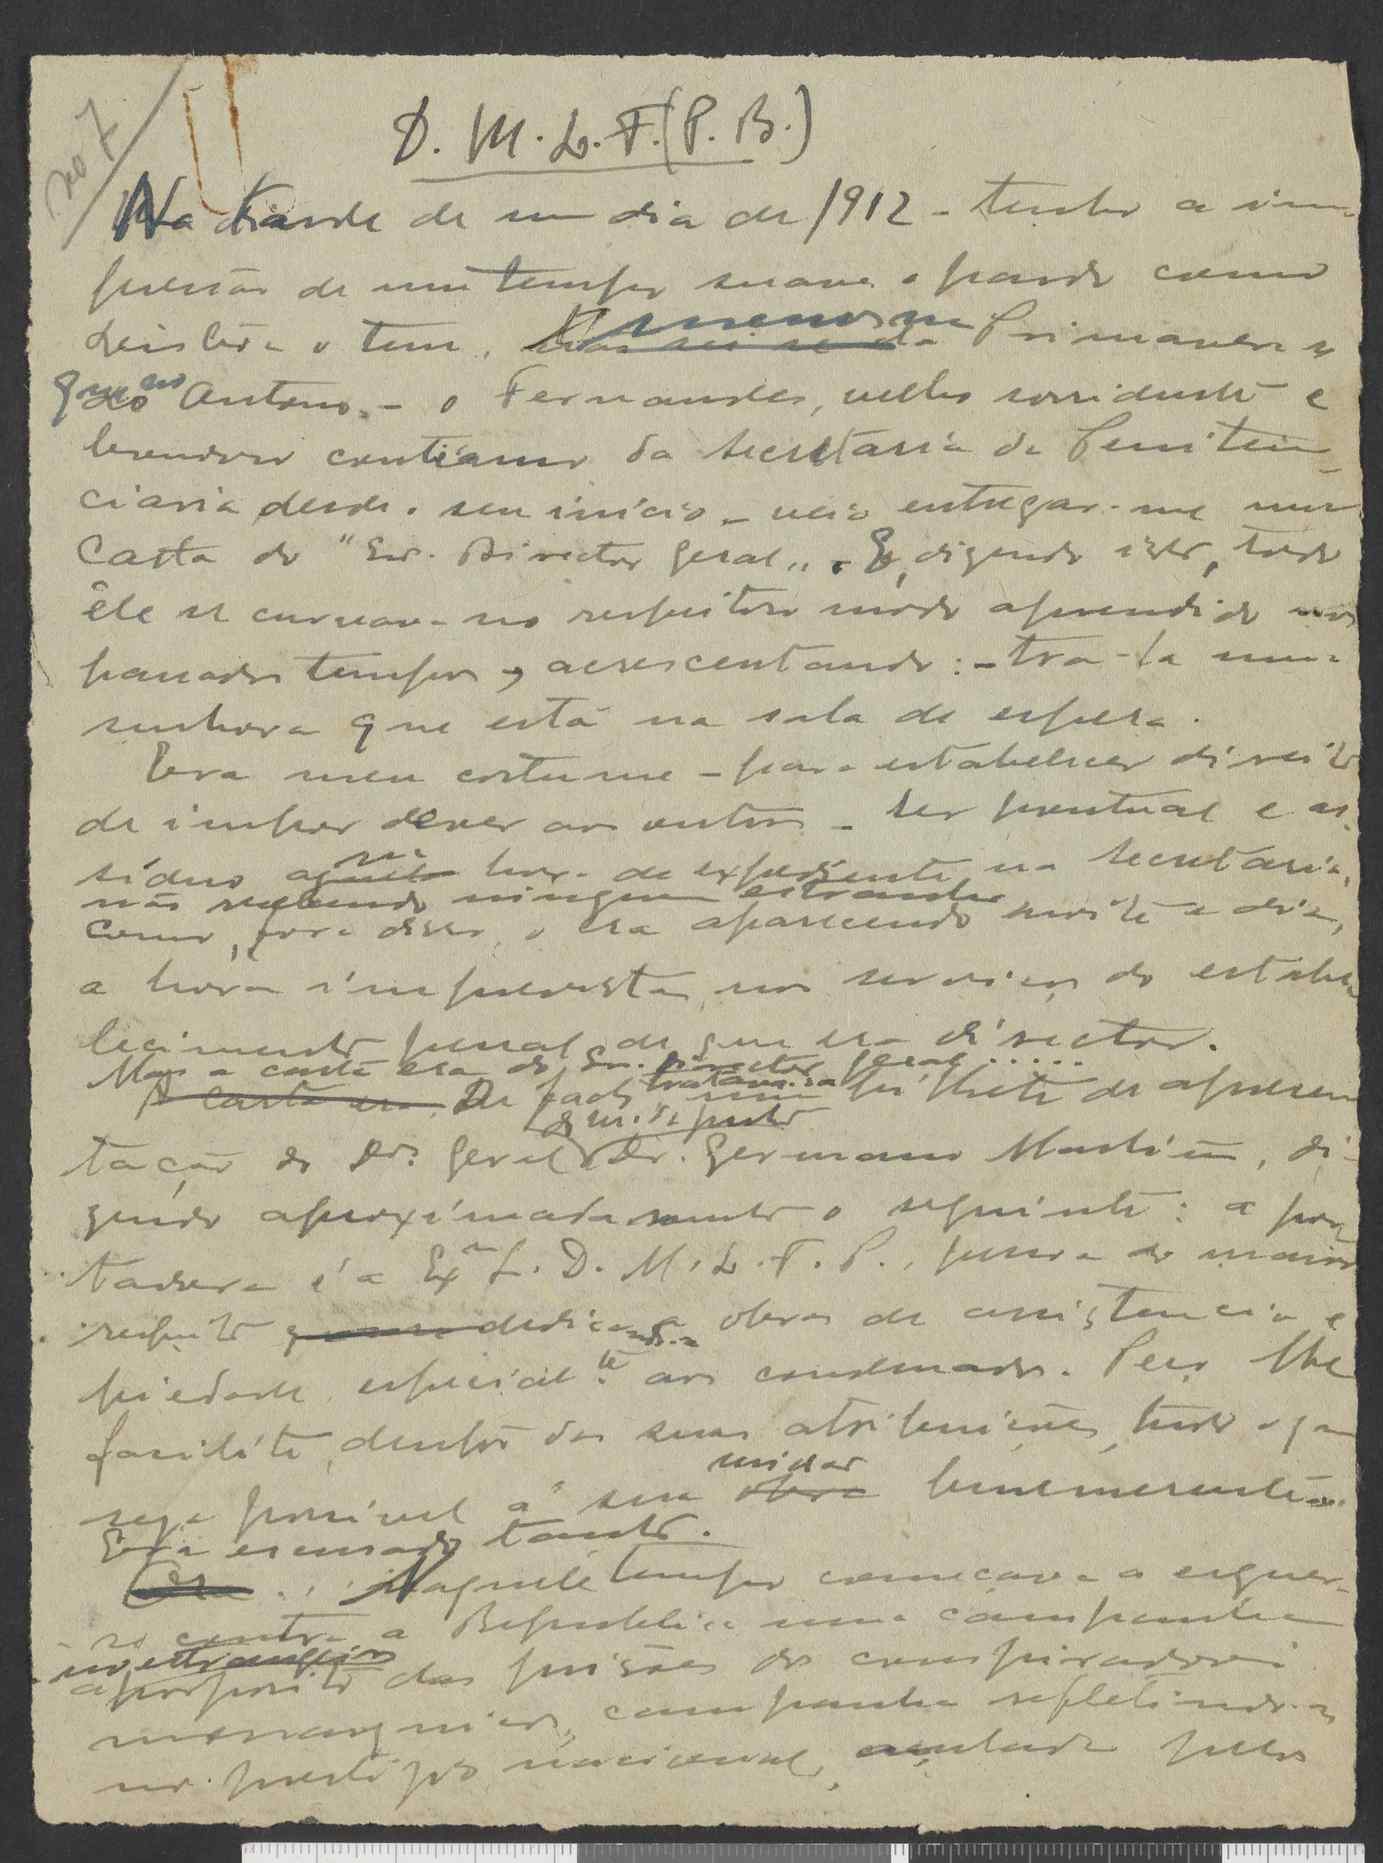 no 7
D. M. L. F. (P. B.)
Na tarde de um dia de 1912 - tenho a im-
pressão de um tempo suave e pardo como
Lisbôa o tem, menos na Primavera
que no Outono, - o Fernandes, velho sorridente e
bondoso contínuo da Secretaria da Peniten-
ciaria desde o seu início - veio entregar-me uma
Carta do "Snr. Director Geral". E, dizendo isto, todo
êle se curvava no respeitoso modo aprendido nos
passados tempos, acrescentando: - tra-la uma
senhora que está na sala de espera.
Era meu costume - para estabelecer direito
de impor dever aos outros - ser pontual e as-
síduo na hora de expediente na secretaria,
não recebendo ninguem estranho
como, fora disso, o era aparecendo noite e dia,
a hora imprevista, nos serviços do estabe-
lecimento penal de que era director.
Mas a carta era do Snr. Director Geral.....
De facto tratava-se bilhete de apresen
tação do Dr. Geral Dr. Germano Martins, di-
zendo aproximadamente o seguinte: a por-
tadora é a Exª S. D. M. L. F. P., pessoa do maior
respeito dedicada a obras de assistencia e
piedade, especialte aos condenados. Peço lhe
facilite, dentro das suas atribuições, tudo o que
seja possivel á sua missão benemerente.
Era escusado tanto.
... Naquele tempo começava a erguer-
se contra a Republica uma campanha
no estrangeiro
a proposito das prisões dos conspiradores
monarquicos, campanha refletindo-se
no prestigio nacional, pelos